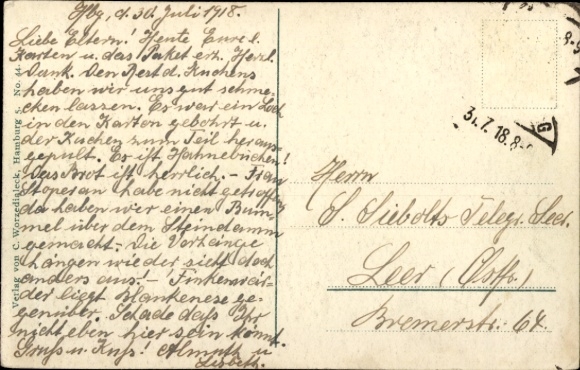 Hbg, d. 30. Juli 1918.
Liebe Eltern! Heute Eure l.
Karten u. das Paket erh. Herzl.
Dank. Den Rest d. Kuchens
haben wir uns gut schme-
cken lassen. Es war ein Loch
in den Karton gebohrt u.
der Kuchen zum Teil heraus-
gepult. Es ist Hahnebüchen!
Das Brot ist herrlich. – Frau
Stoperan habe nicht getroffen
da haben wir einen Bum-
mel über den Steindamm
gemacht. – Die Vorhänge
hängen wieder sieht doch
anders aus! – Finkenwär-
der liegt Blankenese ge-
genüber. Schade daß Ihr
nicht eben hier sein könnt.
Gruß u. Kuß! Almuth u.
Lisbeth.
Verlag von C. Worzedialeck, Hamburg 5. No. 44.
31.7.18.8-
Herrn
S. Siebolts Telegr. Secr.
Leer (Ostfr.)
Bremerstr. 64.